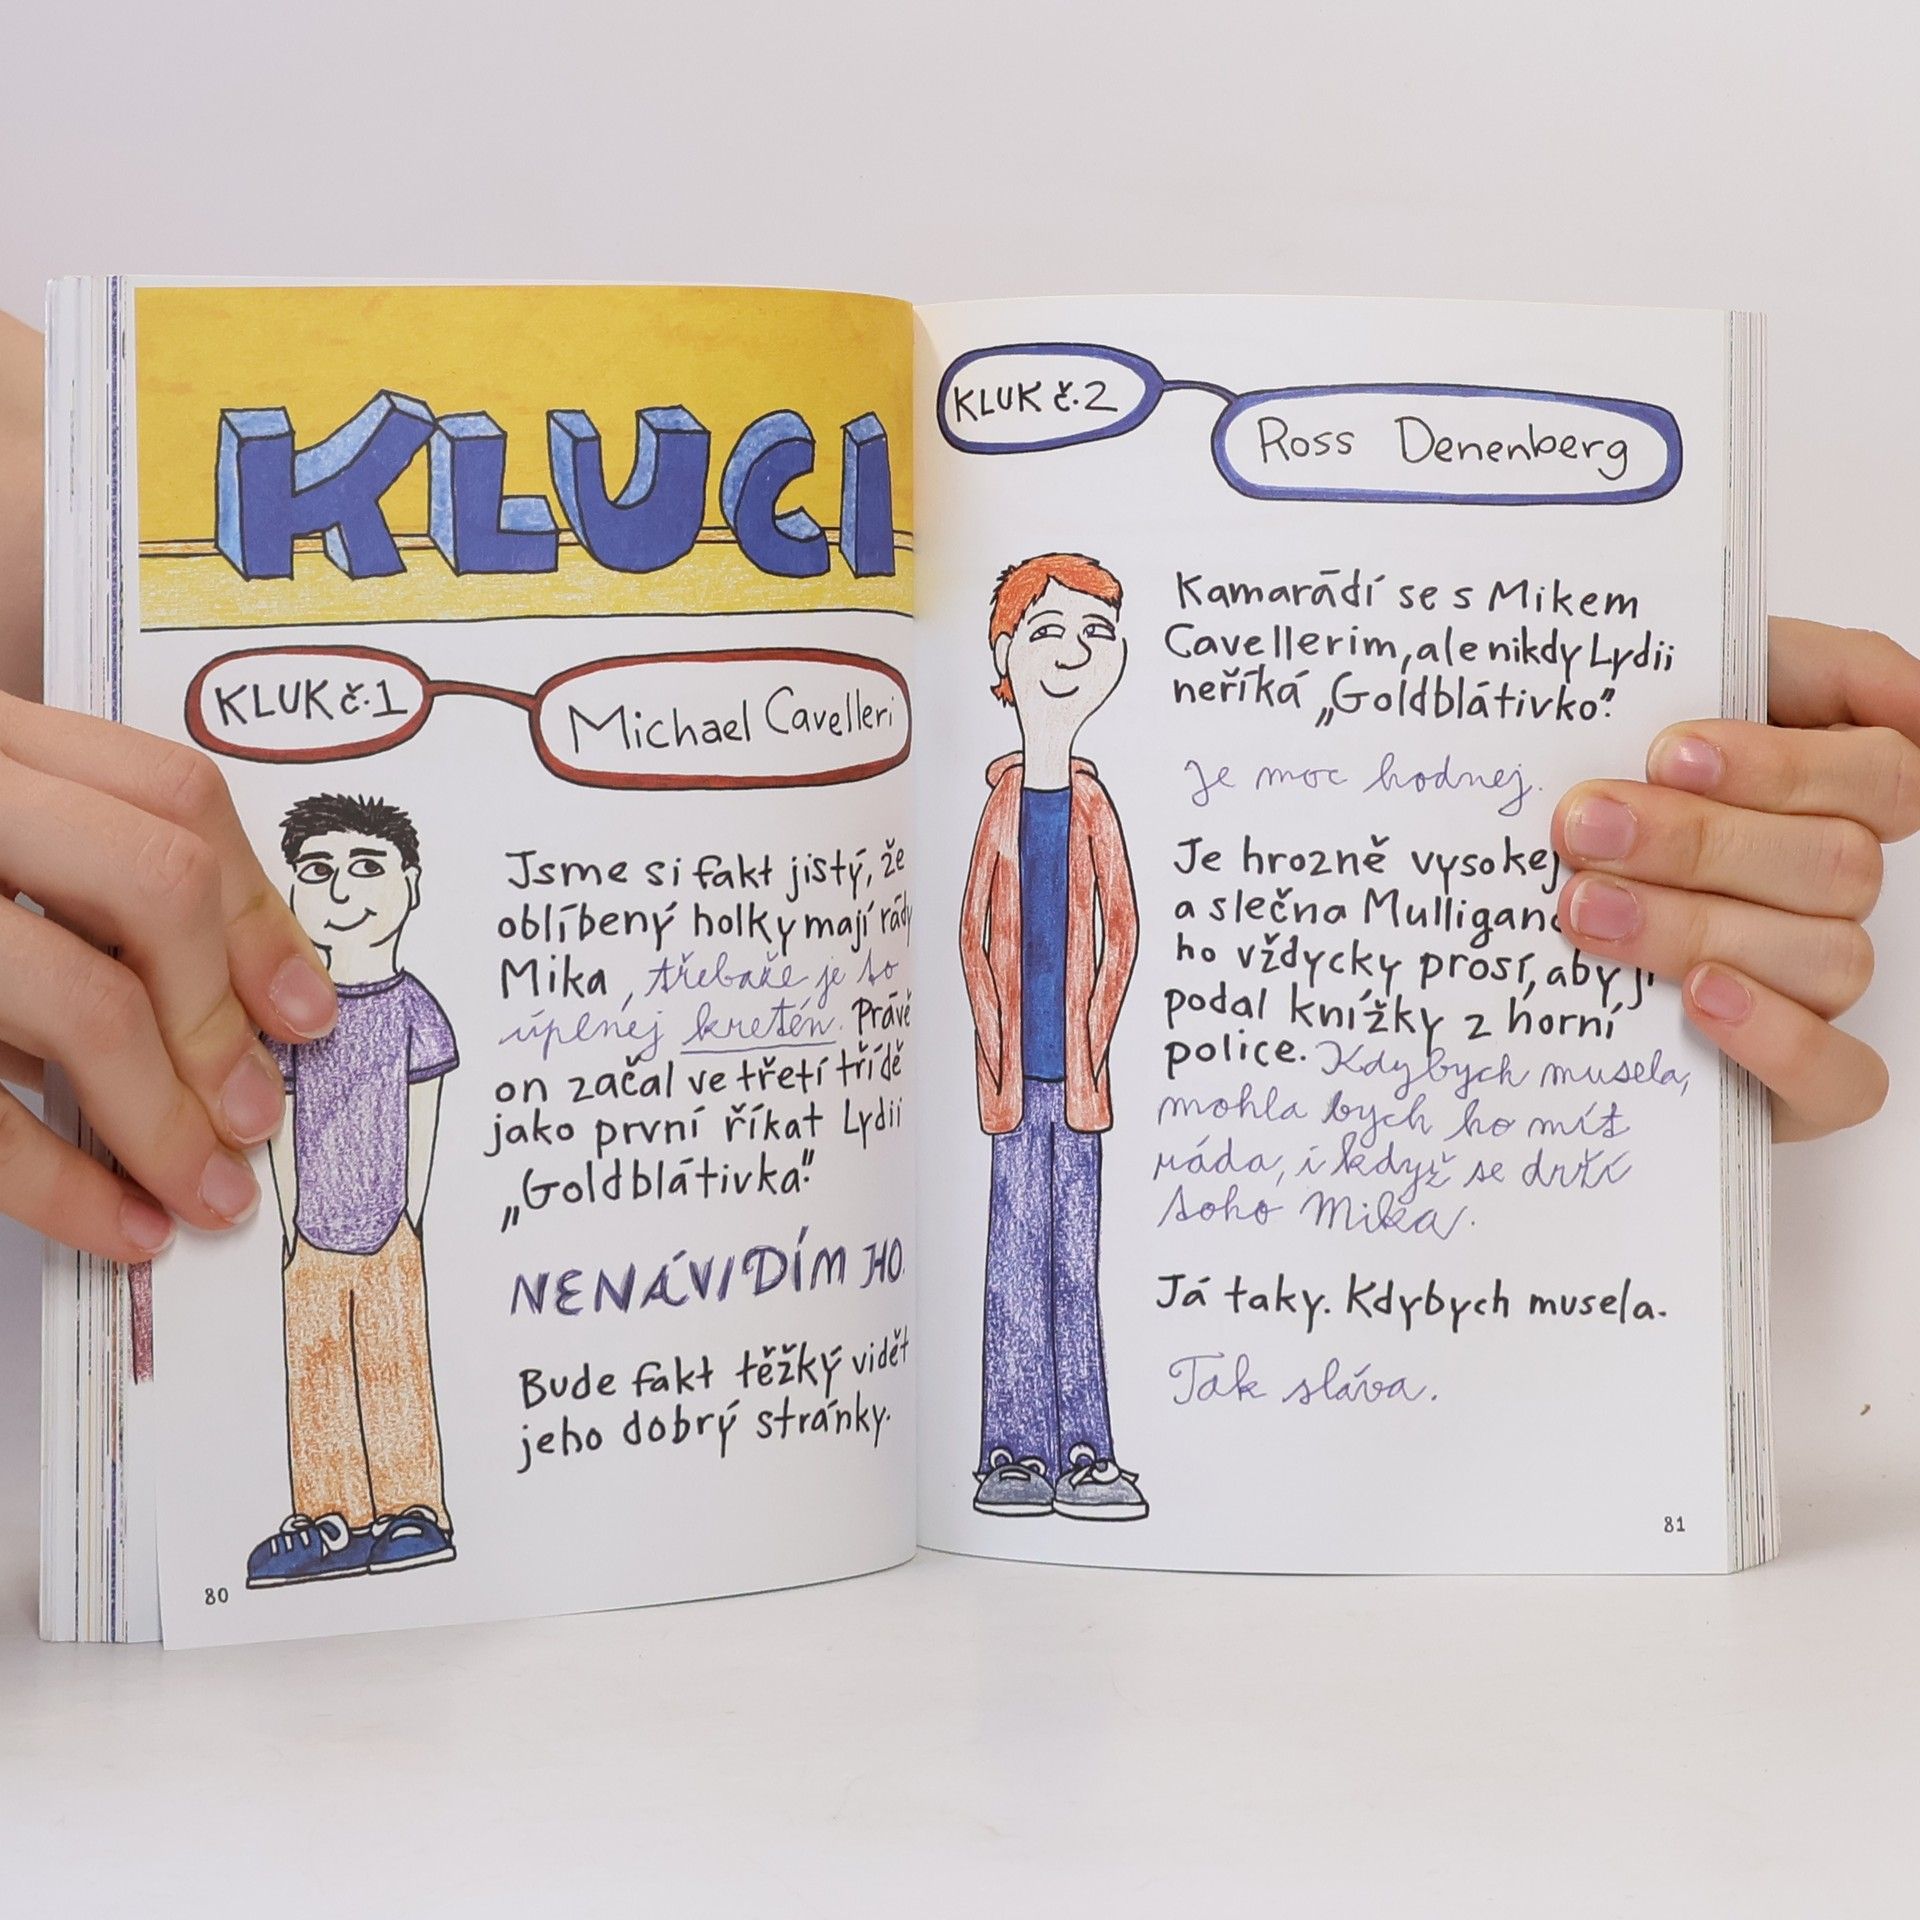 KLUCI
KLUK č.1
Michael Cavelleri
Jsme si fakt jistý, že
oblíbený holky mají rády
Mika, třebaže je to
úplnej kretén. Právě
on začal ve třetí třídě
jako první říkat Lydii
„Goldblátivka."
NENÁVIDÍM HO.
Bude fakt těžký vidět
jeho dobrý stránky.
80
KLUK č.2
Ross Denenberg
Kamarádí se s Mikem
Cavellerim, ale nikdy Lydii
neříká „Goldblátivko."
Je moc hodnej.
Je hrozně vysokej
a slečna
ho vždycky prosí, aby jí
podal knížky z horní
police. Kdybych musela,
mohla bych ho mít
ráda, i když se drží
toho Mika.
Já taky. Kdybych musela.
Tak sláva.
81